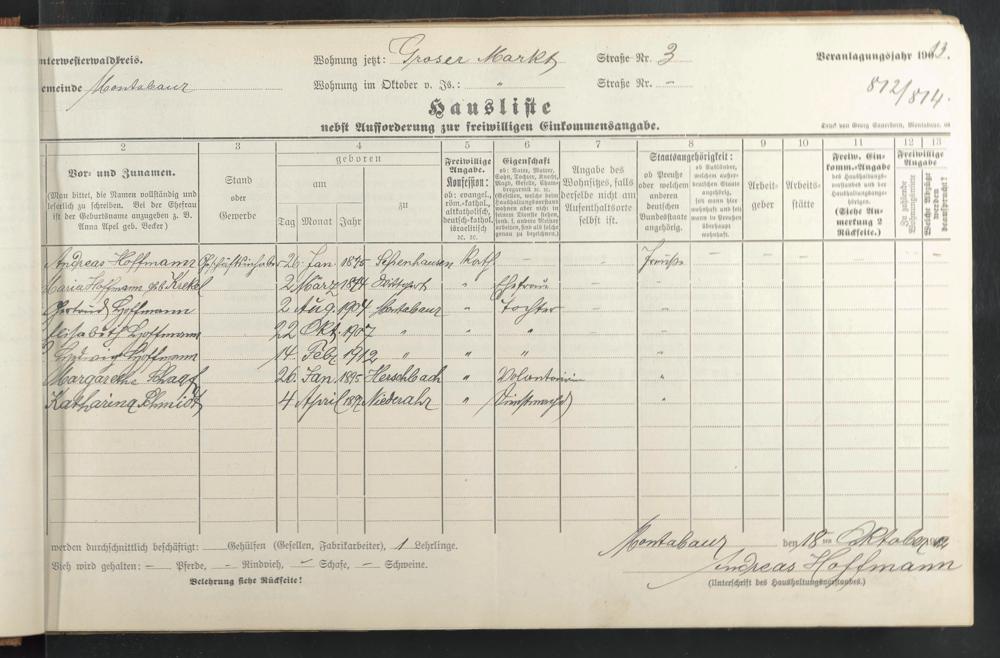 nterwesterwaldkreis. Wohnung jetzt: Groser Markt Straße Nr. 3 Veranlagungsjahr 1913.
emeinde Montabaur Wohnung im Oktober v. Js.: " Straße Nr. –
812/814.
Hausliste
nebst Aufforderung zur freiwilligen Einkommensangabe.
Druck von Georg Sauerborn, Montabaur.
2 3 4 5 6 7 8 9 10 11 12 13
Vor- und Zunamen.
(Man bittet, die Namen vollständig und
leserlich zu schreiben. Bei der Ehefrau
ist der Geburtsname anzugeben z. B.
Anna Apel geb. Becker)
Stand
oder
Gewerbe
geboren
am
zu
Tag Monat Jahr
Freiwillige
Angabe.
Konfession:
ob: evangel.,
röm.-kathol.,
altkatholisch,
deutsch-kathol.
israelitisch
ꝛc. ꝛc.
Eigenschaft
ob: Vater, Mutter,
Sohn, Tochter, Knecht,
Magd, Geselle,
genau zu bezeichnen.)
Angabe des
Wohnsitzes, falls
derselbe nicht am
Aufenthaltsorte
selbst ist.
Staatsangehörigkeit:
ob Preuße
oder welchem
anderen
deutschen
Bundesstaate
angehörig.
ob Ausländer,
welchem außer-
deutschen Staate
angehörig,
seit wann hier
wohnhaft und seit
wann in Preußen
überhaupt
wohnhaft.
Arbeit-
geber
Arbeits-
stätte
Freiw. Ein-
komm.-Angabe
des Haushaltungs-
vorstandes und der
Haushaltungsange-
hörigen.
(Siehe An-
merkung 2
Rückseite.)
Freiwillige
Angabe
In zahlende
Wohnungsmiete
Welche Abzüge
werden
beansprucht?
Andreas Hoffmann Geschäftsinhaber 26. Jan. 1875 Kath. – – Preuße
Maria Hoffmann geb. Krekel 2 März 1874 " Ehefrau – "
Gertrud Hoffmann 2 Aug. 1904 Montabaur " Tochter – "
Elisabeth Hoffmann 22 Okt. 1907 " " " – "
Hedwig Hoffmann 14. Feb. 1912 " " " "
Margarethe 26. Jan. 1895 Herschbach " Volontärin "
Katharina Schmidt 4 April Niederahr " Dienstmagd "
werden durchschnittlich beschäftigt: Gehülfen (Gesellen, Fabrikarbeiter), 1 Lehrlinge.
Vieh wird gehalten: – Pferde, – Rindvieh, – Schafe, – Schweine.
Belehrung siehe Rückseite!
Montabaur den 18. ten Oktober 1912
Andreas Hoffmann
(Unterschrift des Haushaltungsvorstandes.)